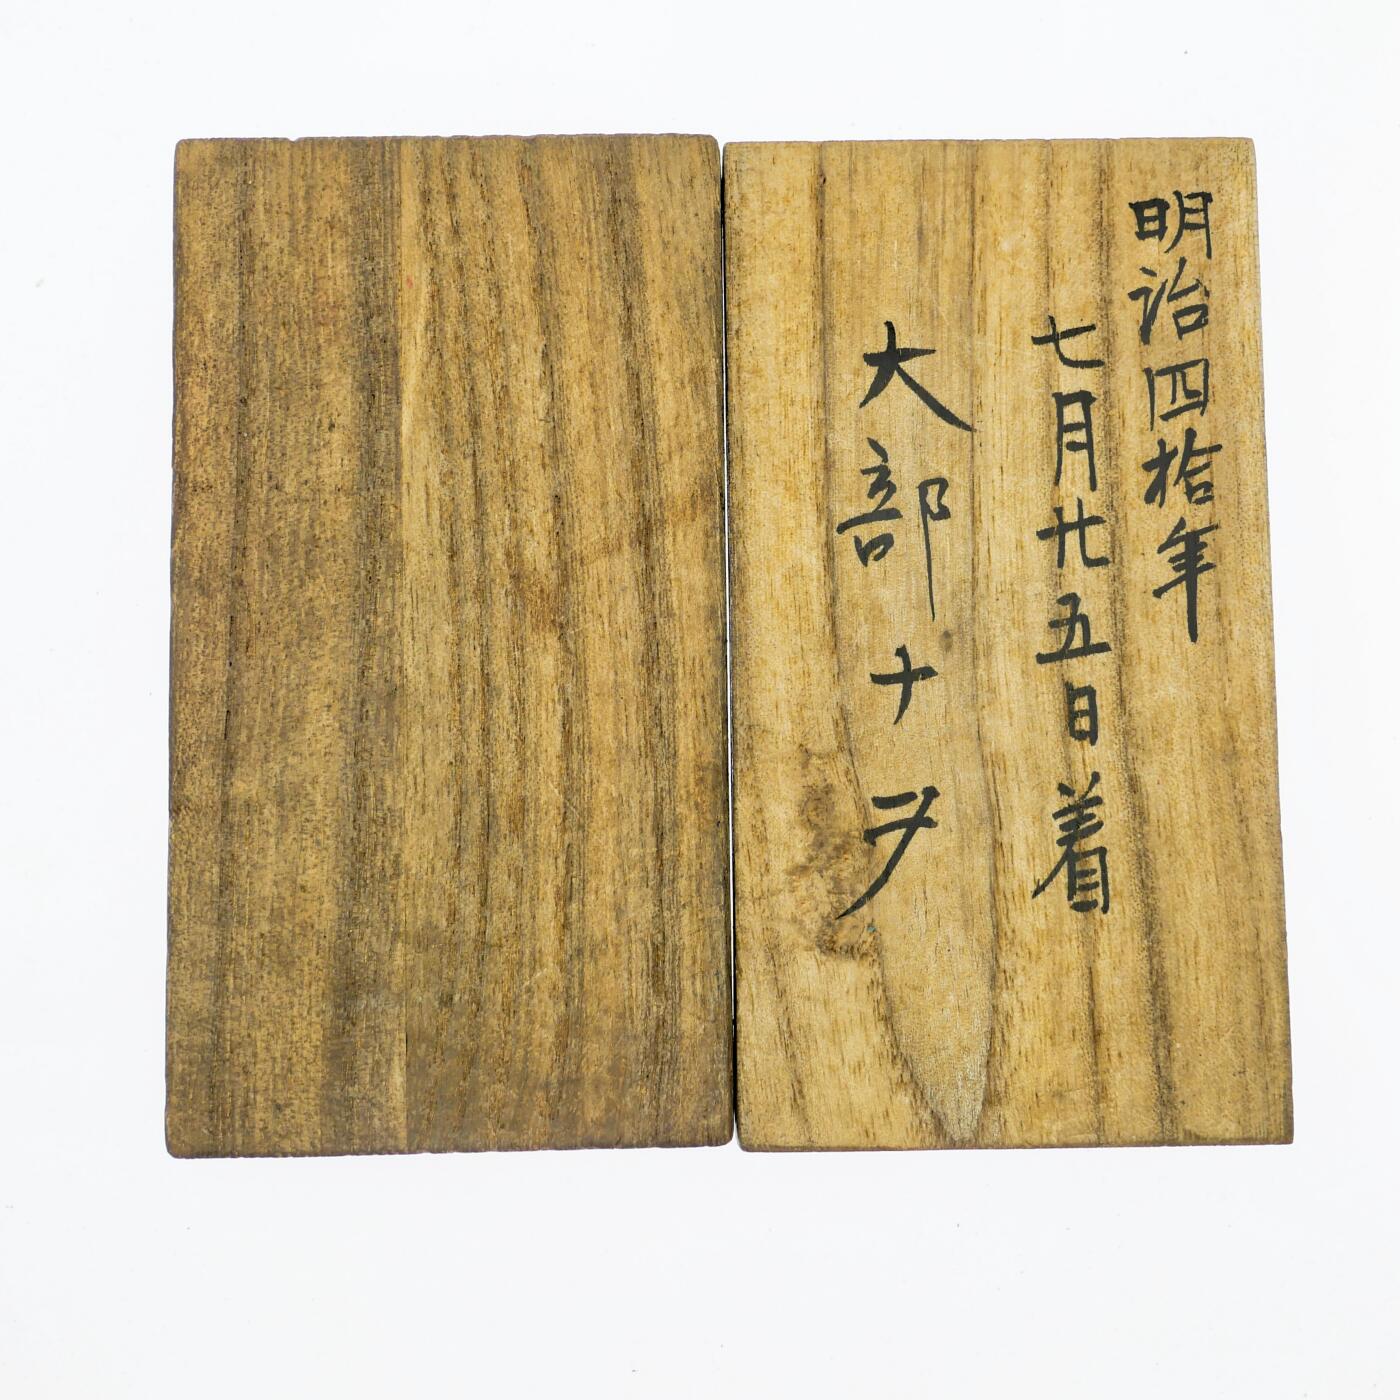 明治四拾年
七月廿五日着
大部ナヲ